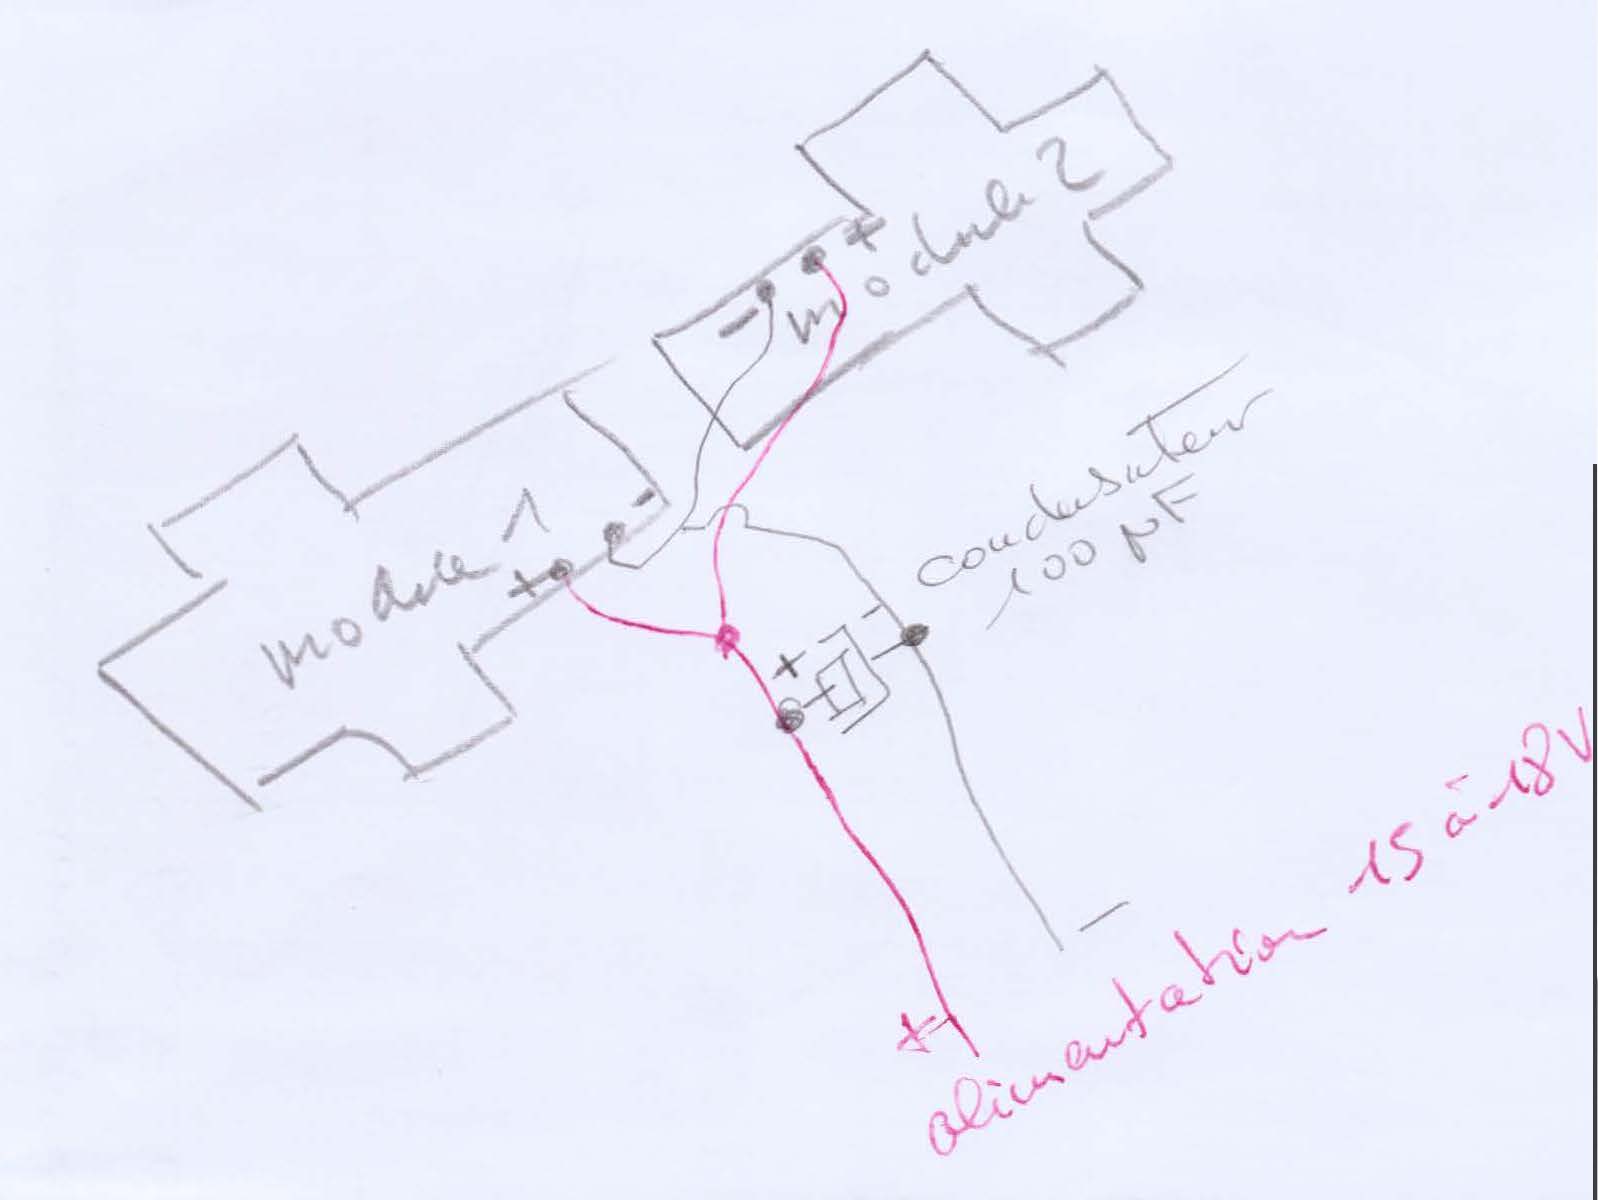 module 2
+
-
module 1
-
+
condensateur
100 µF
-
+
-
+
alimentation 15 à 18V